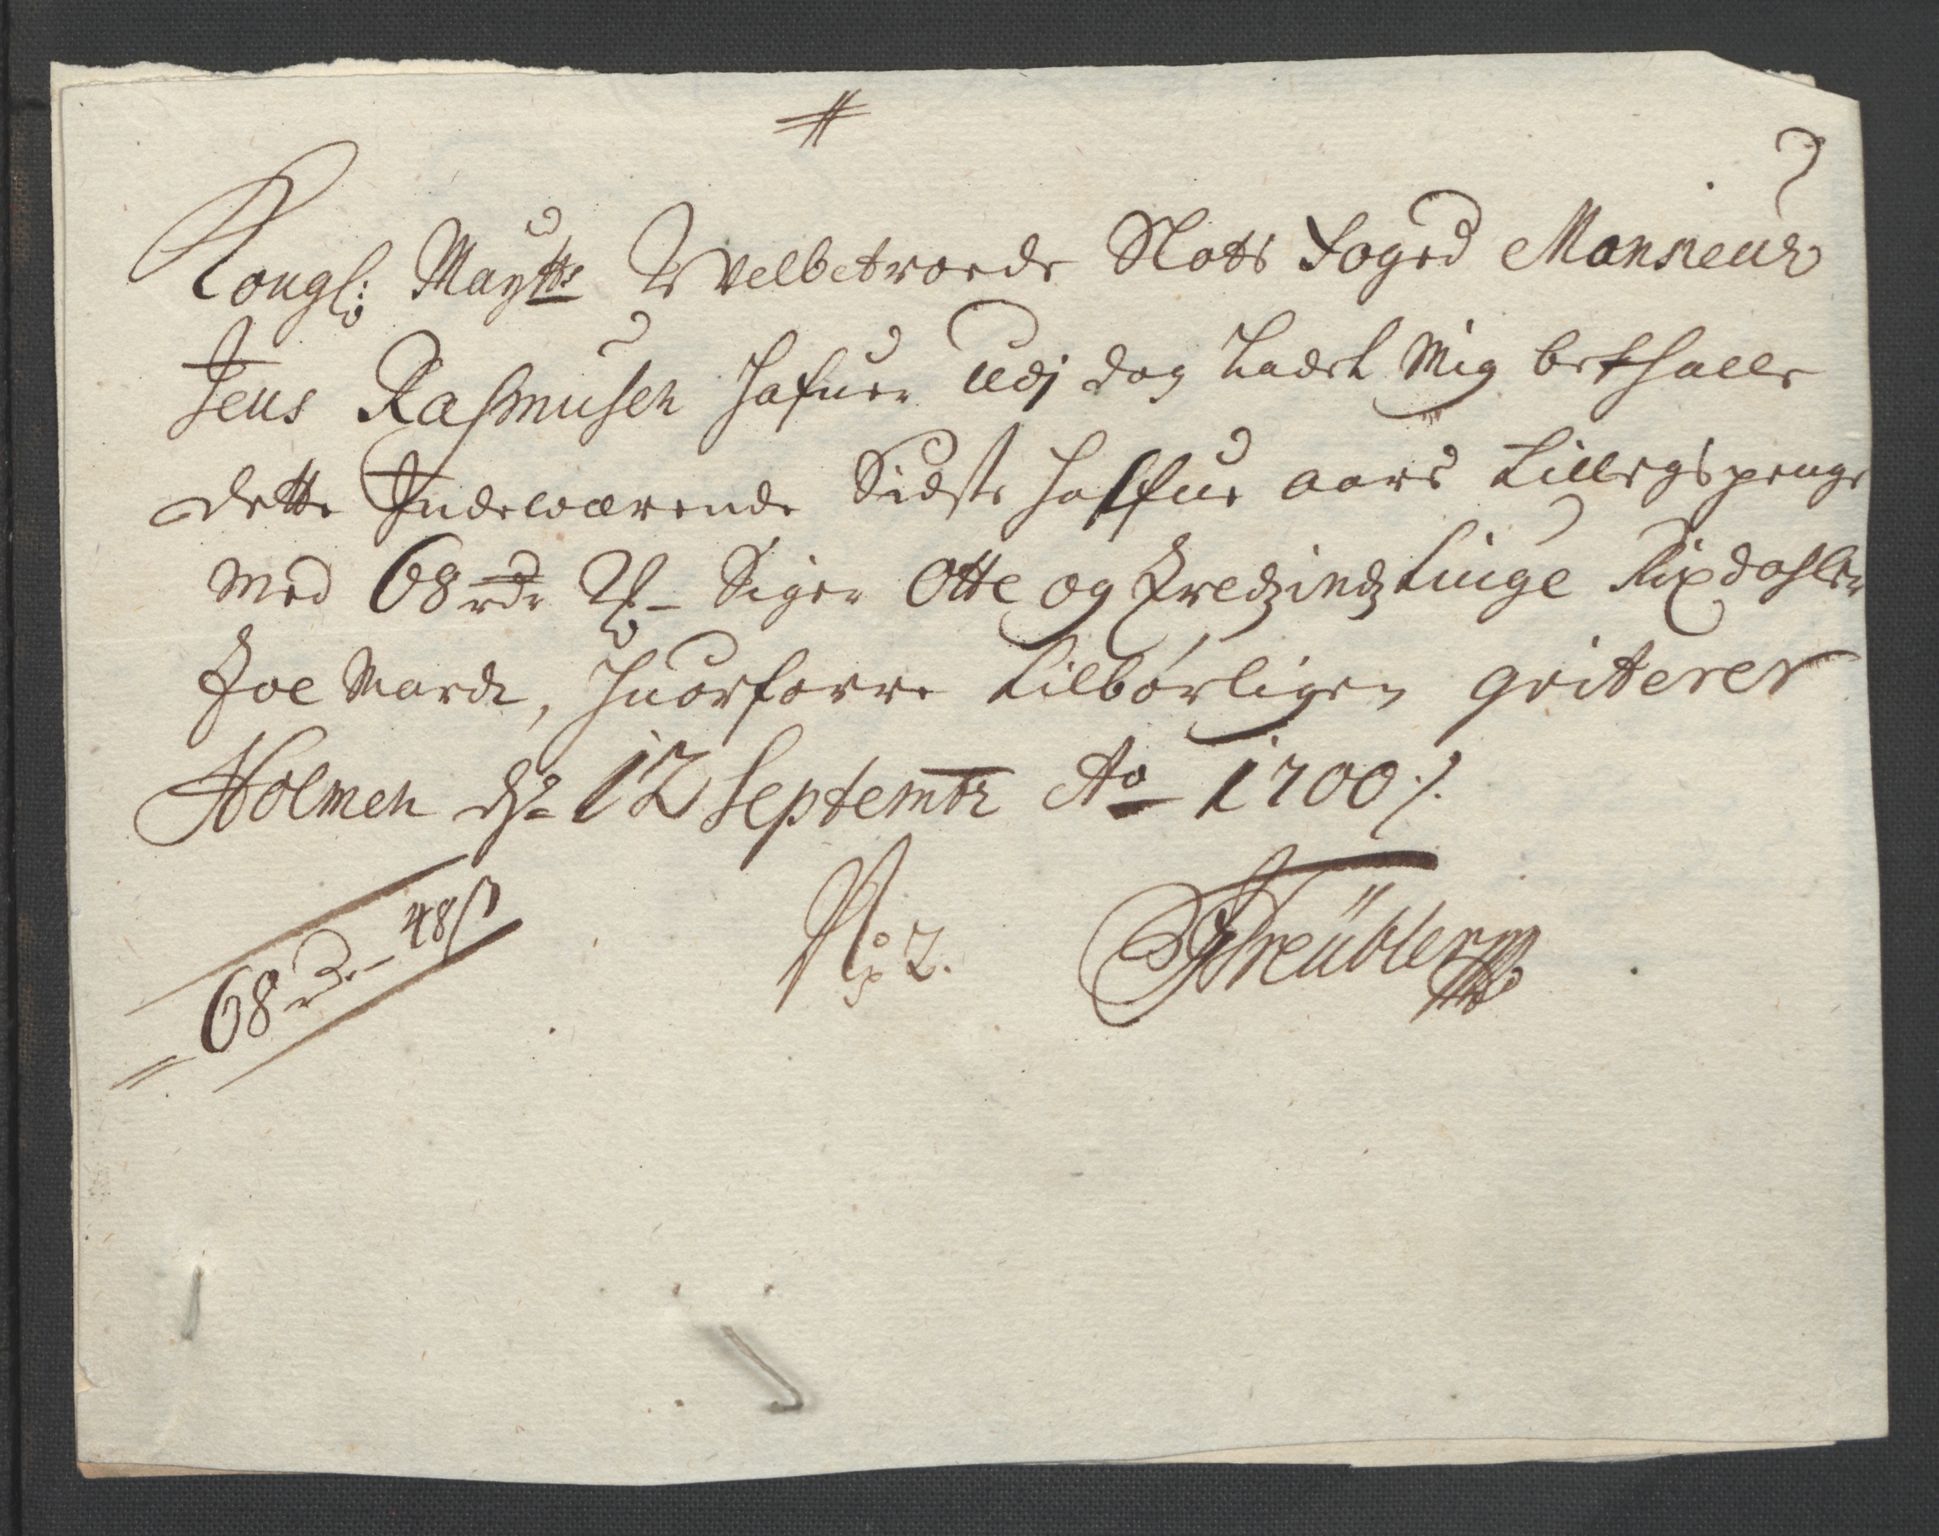 Kongl: Maytts Velbetroede Slots Foged Monsieur
Jens Rasmusen hafuer Udj dag Ladet Mig bethalle
dette Indewærende Sidste halfue aars Tillegspenge
Med 68 rdr 2 ... Siger Otte og Tredzindz tiuge Rixdahler
Toe Marck, huorforre tilbørligen qviterer
Holmen d: 12 Septembr Ao 1700 ./.
68 rdr - 48 ß
No 2.
Treübler